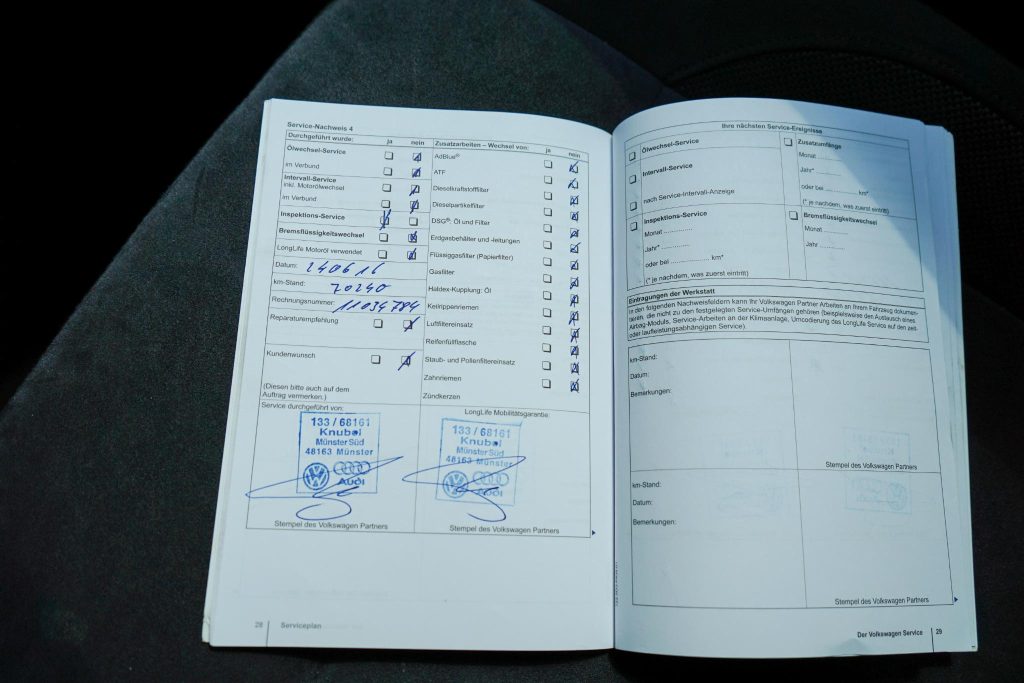 Service-Nachweis 4
Durchgeführt wurde: ja nein
Ölwechsel-Service
im Verbund
Intervall-Service
inkl. Motorölwechsel
im Verbund
Inspektions-Service
Bremsflüssigkeitswechsel
LongLife Motoröl verwendet
Datum: 240616
km-Stand: 70240
Rechnungsnummer: 11034784
Reparaturempfehlung
Kundenwunsch
(Diesen bitte auch auf dem
Auftrag vermerken.)
Zusatzarbeiten – Wechsel von: ja nein
AdBlue®
ATF
Dieselkraftstofffilter
Dieselpartikelfilter
DSG®: Öl und Filter
Erdgasbehälter und -leitungen
Flüssiggasfilter (Papierfilter)
Gasfilter
Haldex-Kupplung: Öl
Keilrippenriemen
Luftfiltereinsatz
Reifenfüllflasche
Staub- und Pollenfiltereinsatz
Zahnriemen
Zündkerzen
Service durchgeführt von:
133 / 68161
Knubel
Münster Süd
48163 Münster
Audi
Stempel des Volkswagen Partners
LongLife Mobilitätsgarantie:
133 / 68161
Knubel
Münster Süd
48163 Münster
Audi
Stempel des Volkswagen Partners
28 Serviceplan
Ihre nächsten Service-Ereignisse
Ölwechsel-Service
Intervall-Service
nach Service-Intervall-Anzeige
Inspektions-Service
Monat ..............
Jahr* ..............
oder bei .............. km*
(* je nachdem, was zuerst eintritt)
Zusatzumfänge
Monat ..............
Jahr* ..............
oder bei .............. km*
(* je nachdem, was zuerst eintritt)
Bremsflüssigkeitswechsel
Monat ..............
Jahr ..............
Eintragungen der Werkstatt
In den folgenden Nachweisfeldern kann Ihr Volkswagen Partner Arbeiten an Ihrem Fahrzeug dokumen-
tieren, die nicht zu den festgelegten Service-Umfängen gehören (beispielsweise den Austausch eines
Airbag-Moduls, Service-Arbeiten an der Klimaanlage, Umcodierung des LongLife Service auf den zeit-
oder laufleistungsabhängigen Service).
km-Stand:
Datum:
Bemerkungen:
Stempel des Volkswagen Partners
km-Stand:
Datum:
Bemerkungen:
Stempel des Volkswagen Partners
Der Volkswagen Service 29